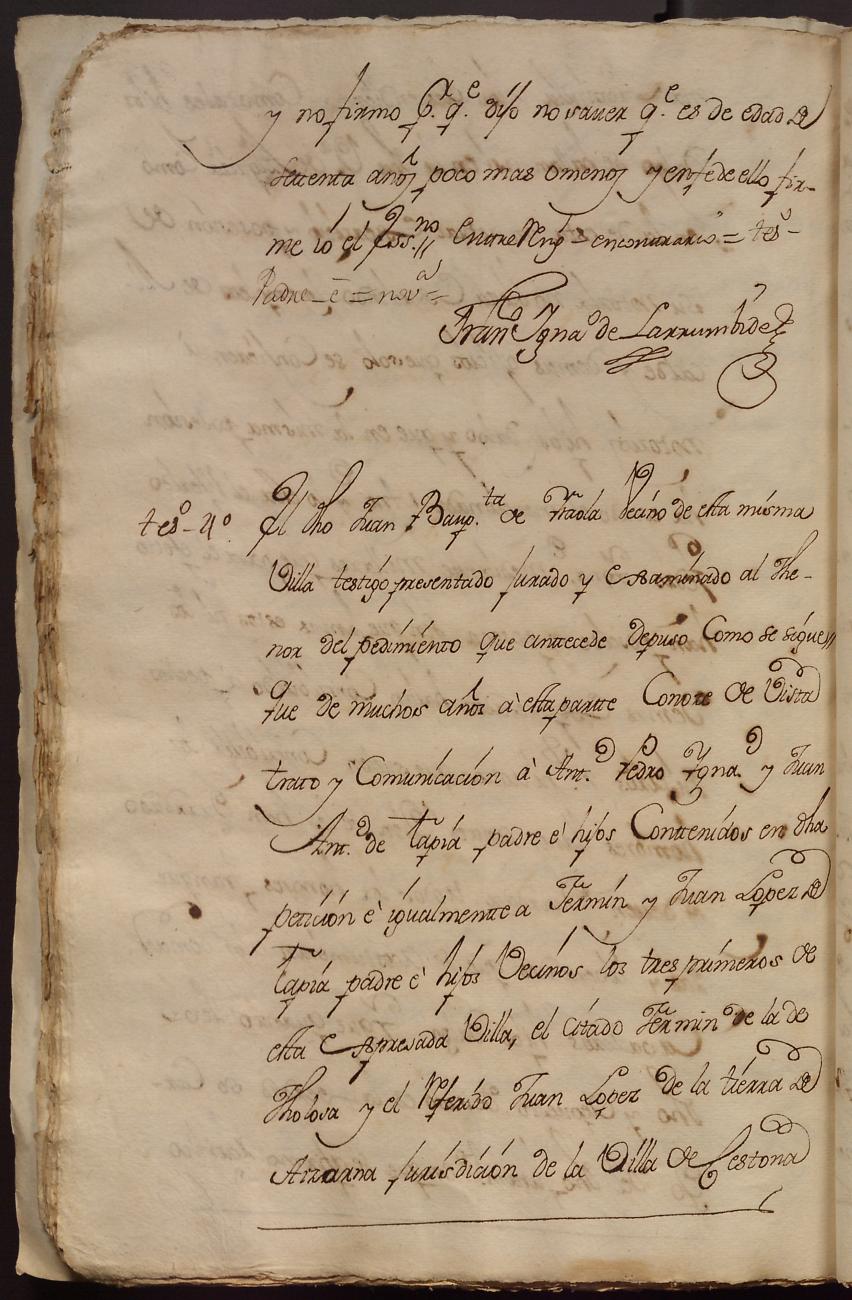 y no firmo P.r q.e dijo no saver q.e es de edad de
setenta años poco mas o menos y en fe de ello fir-
me ió el Ess.no // Entre Reng.s = en contrario = tes.o -
Padre - e = = nov.a =
Fran.co Igna.o de Larrumbide
tes.o - 4.o
El dho Juan Baup.ta de Vecino de esta misma
Villa testigo presentado jurado y esaminado al The-
nor del pedimiento que anttecede depuso Como se sigue //
Que de muchos años à esta partte Conoze de Vista
trato y Comunicación à Ant.o Pedro Ygna.o y Juan
Ant.o de Tapia padre è hijos Conttenidos en dha
petición è igualmentte a Fermin y Juan Lopez de
Tapia padre è hijos Vecinos los tres primeros de
esta espresada Villa, el citado Fermin de la de
Tholosa y el Referido Juan Lopez de la tierra de
Arrarna jurisdición de la Villa de Cestona